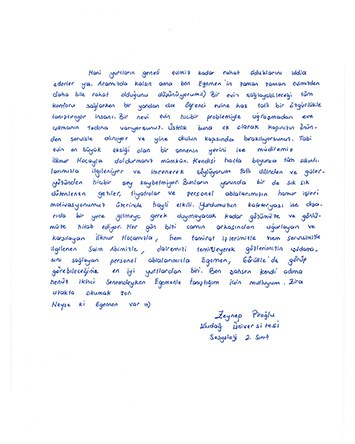 Hani yurtların geneli evimiz kadar rahat olduklarını iddia
ederler ya. Aramızda kalsın ama ben Egemen'in zaman zaman evimizden
daha bile rahat olduğunu düşünüyorum:) Bir evin sağlayabileceği tüm
konforu sağlarken bir yandan da öğrenci evine has tatlı bir özgürlükle
tanıştırıyor insanı. Bir nevi evin hiçbir problemiyle uğraşmadan eve
çıkmanın tadına varıyorsunuz. Üstelik buna ek olarak kapınızın önün-
den servisle alınıyor ve yine okulun kapısında bırakılıyorsunuz. Tabi
evin en büyük eksiği olan bir annenin yerini ise müdiremiz
İlknur Hocayla doldurmanız mümkün. Kendisi hafta boyunca tüm sorun-
larımızla ilgileniyor ve söylüyorum tatlı dilinden ve güler-
yüzünden hiçbir şey kaybetmiyor. Bunların yanında bir de sık sık
düzenlenen geziler, tiyatrolar ve personel ablalarımızın hamur işleri
motivasyonumuz üzerinde hayli etkili. Yurdumuzun kafeteryası ise dışa-
rıda bir yere gitmeye gerek duymayacak kadar gözümüze ve gönlü-
müze hitap ediyor. Her gün bizi camın arkasından uğurlayan ve
karşılayan İlknur Hocamızla, hem tamirat işlerimizle hem servisimizle
ilgilenen Saim Abimizle, dairemizi temizleyerek gözlerimizin
sını sağlayan personel ablalarımızla Egemen, Görükle'de görüp
görebileceğiniz en iyi yurtlardan biri. Ben şahsen kendi adıma
henüz ikinci senemdeyken Egemenle tanıştığım için mutluyum. Zira
uzakta okumak zor.
Neyse ki Egemen var :)
Zeynep Piroğlu
Uludağ Üniversitesi
Sosyoloji 2. Sınıf